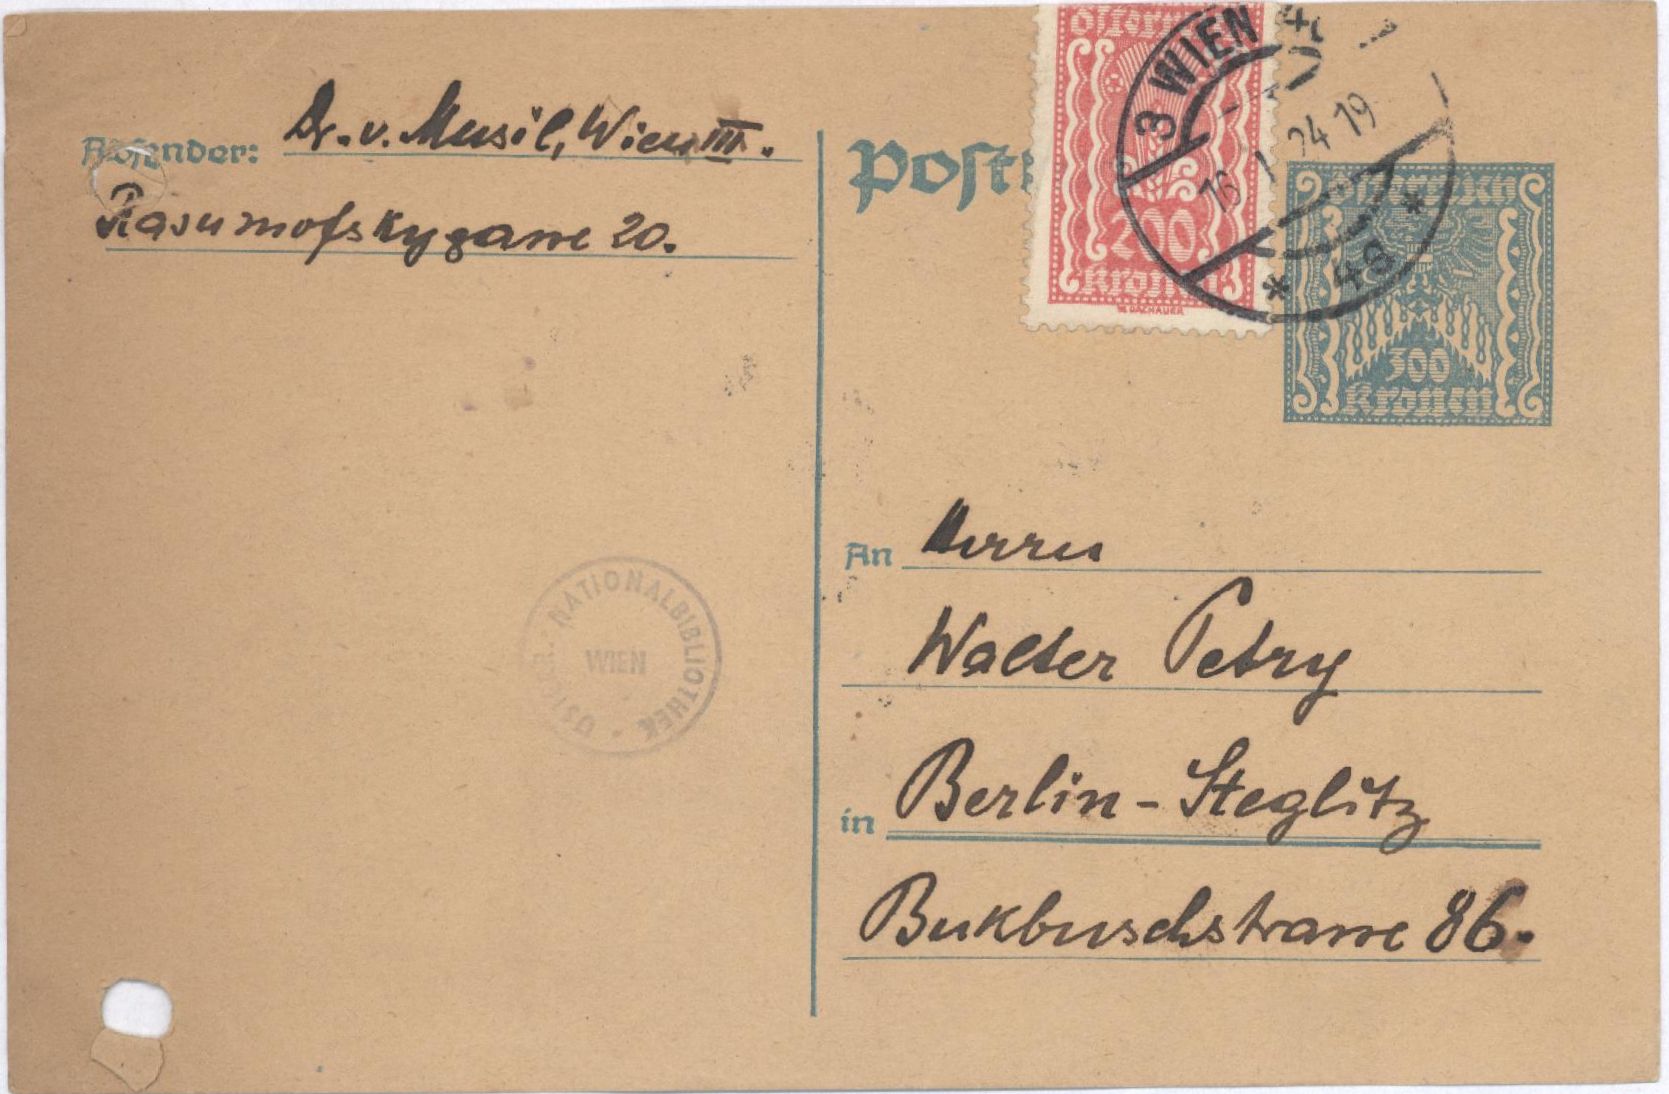 Absender: Dr. v. Musil, Wien III.
Rasumofskygasse 20.
Postk
Österreich
200
Kronen
W. DACHAUER
3 WIEN 40
16. I. 24 19
* 4g *
Österreich
300
Kronen
An Herrn
Walter Petry
in Berlin-Steglitz
Bukbuschstrasse 86.
ÖSTERR. NATIONALBIBLIOTHEK
WIEN